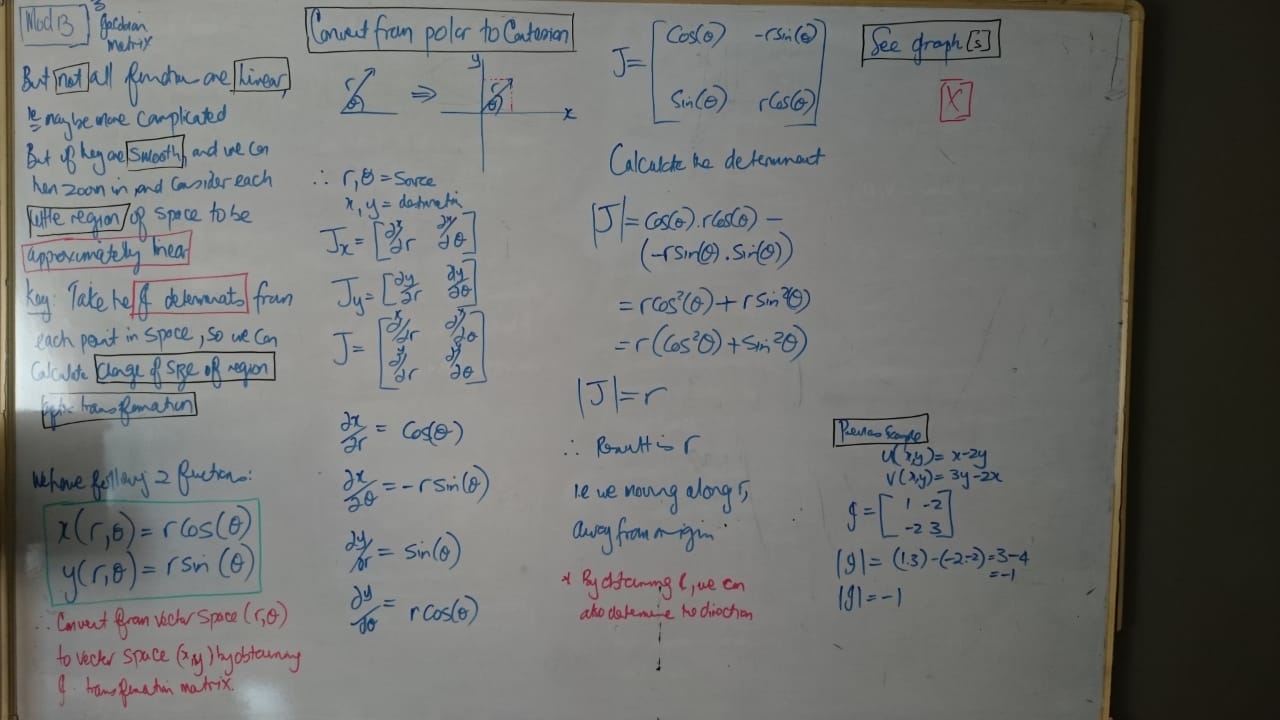 Mod 3
3
Jacobian
matrix
But not all function are linear,
ie maybe more complicated
But if they are smooth, and we can
hen zoom in, and consider each
little region of space to be
approximately linear
Key: Take he J determinats from
each point in space, so we can
Calculate change of size of region
transformation
We have following 2 functions:
x(r,θ) = rcos(θ)
y(r,θ) = rsin(θ)
∴ Convert from vector space (r,θ)
to vector space (x,y) by obtaining
J transfomation matrix.
Convert from polar to Cartesian
r
θ
⇒
y
r
θ
x
∴ r,θ = Sorce
x,y = destination
Jx = [∂x/∂r ∂x/∂θ]
Jy = [∂y/∂r ∂y/∂θ]
J = [∂x/∂r ∂x/∂θ
∂y/∂r ∂y/∂θ]
∂x/∂r = Cos(θ)
∂x/∂θ = -rsin(θ)
∂y/∂r = sin(θ)
∂y/∂θ = rcos(θ)
J = [Cos(θ) -rsin(θ)
Sin(θ) rCos(θ)]
Calculate the determinant
|J| = Cos(θ).rCos(θ) –
(-rSin(θ).Sin(θ))
= rCos²(θ) + rSin²(θ)
= r(Cos²θ) + Sin²θ)
|J| = r
∴ Result is r
i.e we moving along r,
away from origin
* By obtaining r, we can
also determine the direction
See graph [s]
X
Previous Example
u(x,y) = x-2y
v(x,y) = 3y-2x
J = [1 -2
-2 3]
|J| = (1.3)-(-2.-2) = 3-4
= -1
|J| = -1